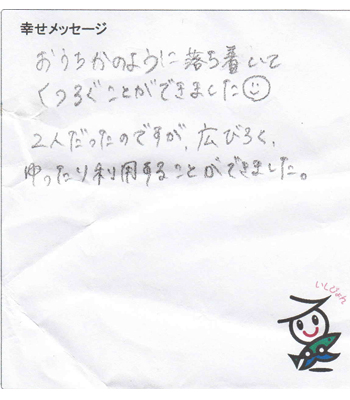 幸せメッセージ
おうちかのように落ち着いて
くつろぐことができました
2人だったのですが、広びろく、
ゆったり利用することができました。
いしぴょん